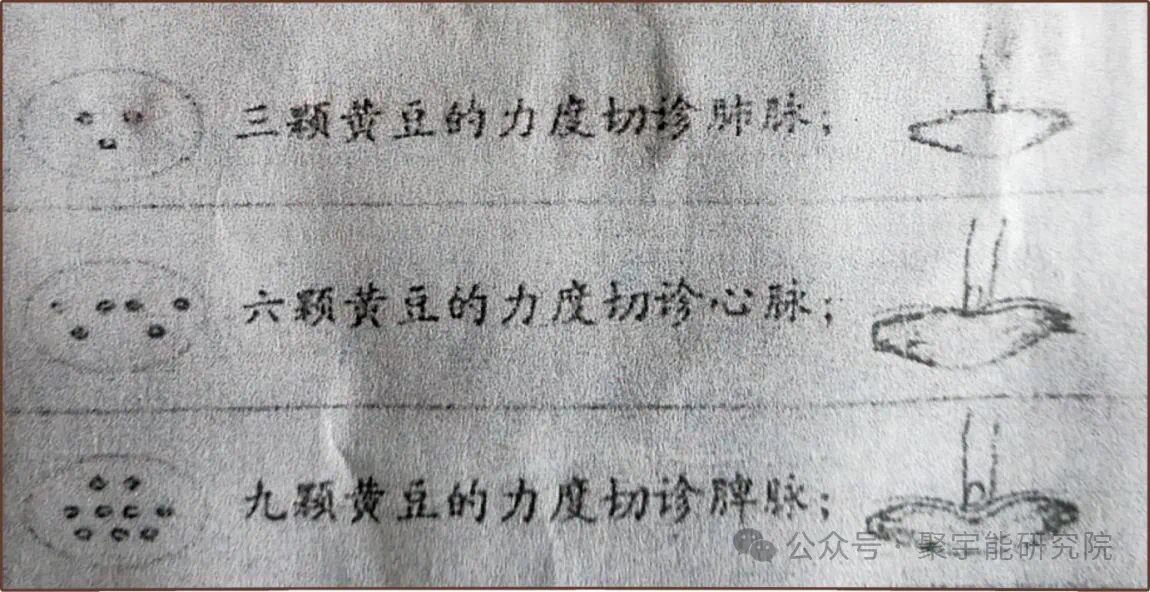 三颗黄豆的力度切诊肺脉；
六颗黄豆的力度切诊心脉；
九颗黄豆的力度切诊脾脉；
公众号·聚宇能研究院